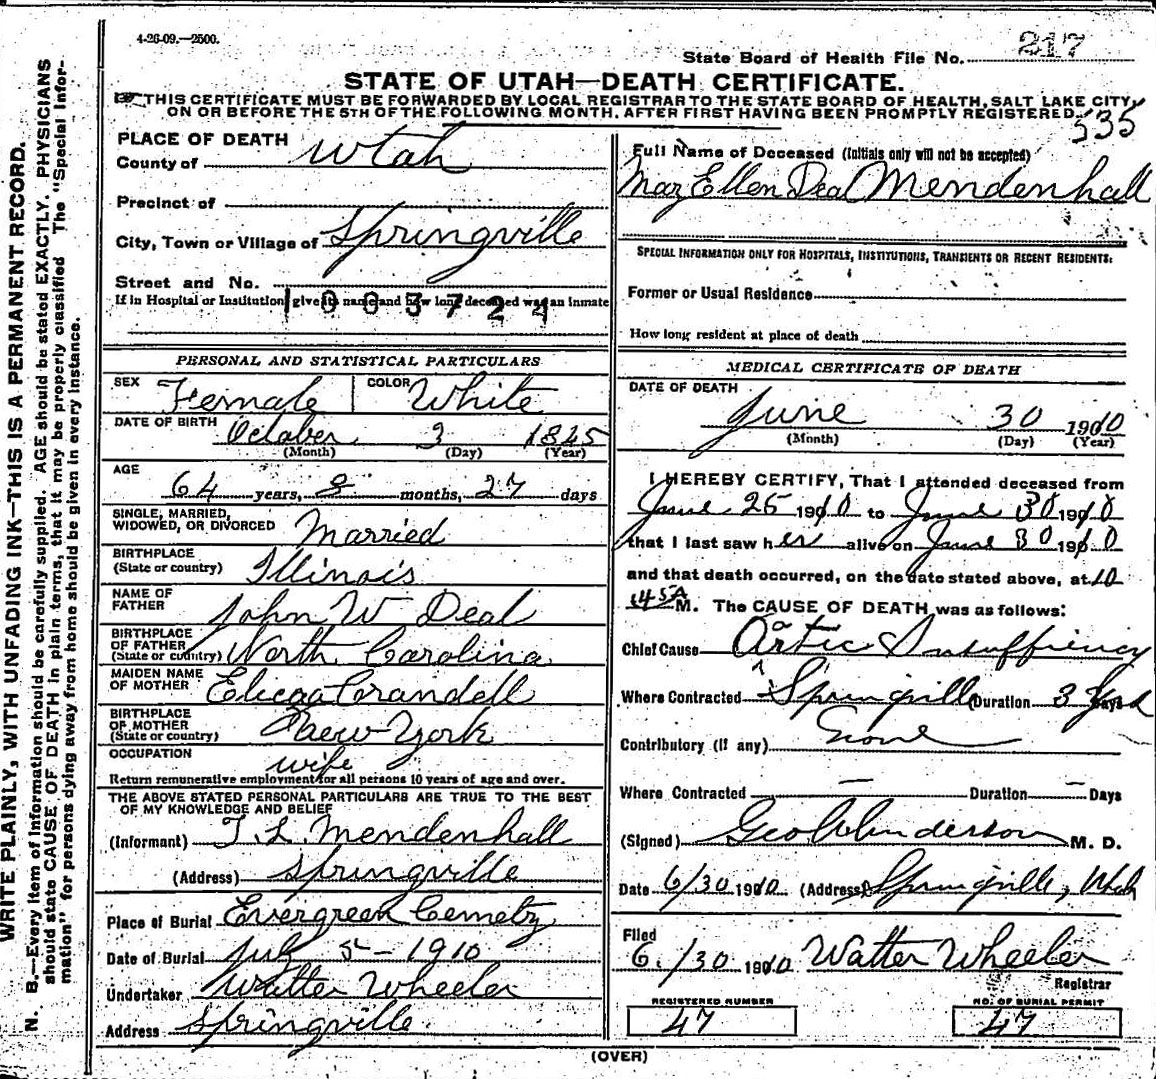 4-26-09.—2500.
State Board of Health File No. 217
STATE OF UTAH—DEATH CERTIFICATE.
THIS CERTIFICATE MUST BE FORWARDED BY LOCAL REGISTRAR TO THE STATE BOARD OF HEALTH, SALT LAKE CITY,
ON OR BEFORE THE 5TH OF THE FOLLOWING MONTH, AFTER FIRST HAVING BEEN PROMPTLY REGISTERED.
535
WRITE PLAINLY, WITH UNFADING INK—THIS IS A PERMANENT RECORD.
N. B.—Every item of information should be carefully supplied. AGE should be stated EXACTLY. PHYSICIANS
should state CAUSE OF DEATH in plain terms, that it may be properly classified. The "Special Infor-
mation" for persons dying away from home should be given in every instance.
PLACE OF DEATH
County of Utah
Precinct of
City, Town or Village of Springville
Street and No.
If in Hospital or Institution give its name and how long deceased was an inmate
1003724
PERSONAL AND STATISTICAL PARTICULARS
SEX Female COLOR White
DATE OF BIRTH October 3 1845
(Month) (Day) (Year)
AGE
64 years, 8 months, 27 days
SINGLE, MARRIED,
WIDOWED, OR DIVORCED Married
BIRTHPLACE
(State or country) Illinois
NAME OF
FATHER John W Deal
BIRTHPLACE
OF FATHER
(State or country) North Carolina
MAIDEN NAME
OF MOTHER Crandell
BIRTHPLACE
OF MOTHER
(State or country) New York
OCCUPATION wife
Return remunerative employment for all persons 10 years of age and over.
THE ABOVE STATED PERSONAL PARTICULARS ARE TRUE TO THE BEST
OF MY KNOWLEDGE AND BELIEF
(Informant) T. L. Mendenhall
(Address) Springville
Place of Burial Evergreen Cemetry
Date of Burial July 5 - 1910
Undertaker Walter Wheeler
Address Springville
Full Name of Deceased (Initials only will not be accepted)
Mary Ellen Deal Mendenhall
SPECIAL INFORMATION ONLY FOR HOSPITALS, INSTITUTIONS, TRANSIENTS OR RECENT RESIDENTS:
Former or Usual Residence
How long resident at place of death
MEDICAL CERTIFICATE OF DEATH
DATE OF DEATH
June 30 1910
(Month) (Day) (Year)
I HEREBY CERTIFY, That I attended deceased from
June 25 1910 to June 30 1910
that I last saw her alive on June 30 1910
and that death occurred, on the date stated above, at 10
45 A M. The CAUSE OF DEATH was as follows:
Chief Cause Aortic Insuffiency
Where Contracted Springville Duration 3 Days
Contributory (if any) None
Where Contracted — Duration — Days
(Signed) Geo Anderson M. D.
Date 6/30 1910 (Address) Springville, Utah
Filed
6/30 1910 Walter Wheeler
Registrar
REGISTERED NUMBER
47
NO. OF BURIAL PERMIT
47
(OVER)